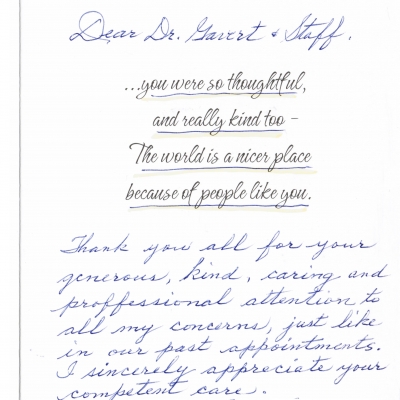 Dear Dr. Gavert & Staff.
...you were so thoughtful,
and really kind too –
The world is a nicer place
because of people like you.
Thank you all for your
generous, kind, caring and
proffessional attention to
all my concerns, just like
in our past appointments.
I sincerely appreciate your
competent care.